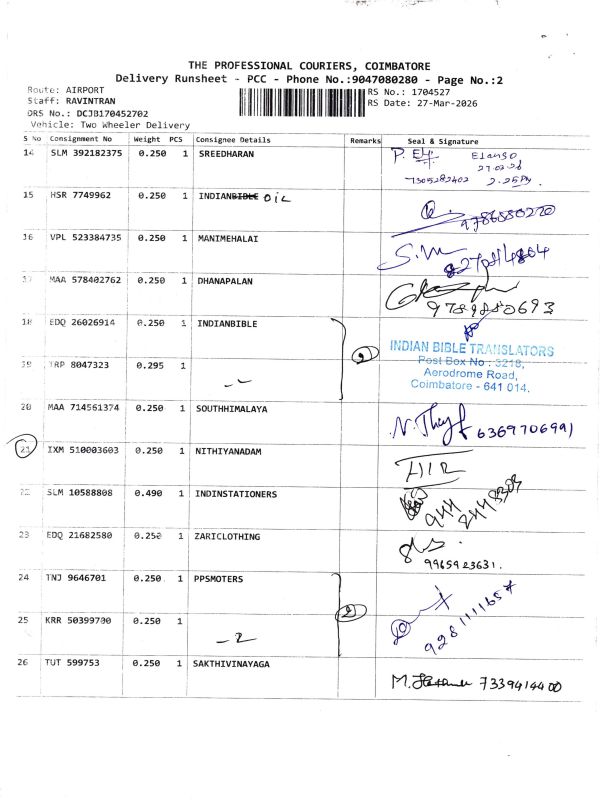 THE PROFESSIONAL COURIERS, COIMBATORE
Delivery Runsheet - PCC - Phone No.:9047080280 - Page No.:2
Route: AIRPORT
Staff: RAVINTRAN
DRS No.: DCJB170452702
Vehicle: Two Wheeler Delivery
RS No.: 1704527
RS Date: 27-Mar-2026
S No Consignment No Weight PCS Consignee Details Remarks Seal & Signature
14 SLM 392182375 0.250 1 SREEDHARAN
7305282402 2.25PM
15 HSR 7749962 0.250 1 INDIANBIBLE OIL
9786580220
16 VPL 523384735 0.250 1 MANIMEHALAI
S.M
17 MAA 578402762 0.250 1 DHANAPALAN
9789880693
18 EDQ 26026914 0.250 1 INDIANBIBLE
2
INDIAN BIBLE TRANSLATORS
Post Box No : 3218,
Aerodrome Road,
Coimbatore - 641 014.
19 TRP 8047323 0.295 1
20 MAA 714561374 0.250 1 SOUTHHIMALAYA
6369706991
21 IXM 510003603 0.250 1 NITHIYANADAM
22 SLM 10588808 0.490 1 INDINSTATIONERS
944 2448303
23 EDQ 21682580 0.250 1 ZARICLOTHING
9965923631.
24 TNJ 9646701 0.250 1 PPSMOTERS
2
25 KRR 50399700 0.250 1
26 TUT 599753 0.250 1 SAKTHIVINAYAGA
7339414400